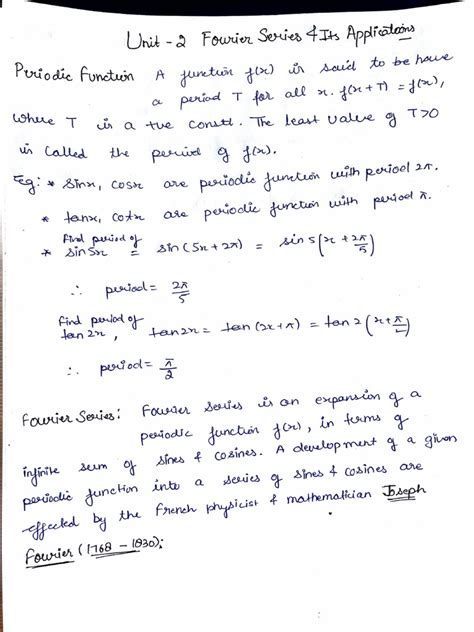 Unit - 2 Fourier Series & Its Applications
Periodic Function A function f(x) is said to be have
a period T for all x. f(x+T) = f(x),
where T is a +ve const. The least value of T>0
is called the period of f(x).
Eg: * sinx, cosx are periodic function with period 2π.
* tanx, cotx are periodic function with period π.
Find period of
* sin5x = sin(5x+2π) = sin 5(x + 2π/5)
∴ period = 2π/5
Find period of
tan 2x, tan2x = tan(2x+π) = tan 2(x+π/2)
∴ period = π/2
Fourier Series: Fourier series is an expansion of a
periodic function f(x), in terms of
infinite sum of sines & cosines. A development of a given
periodic function into a series of sines & cosines are
effected by the French physicist & mathematician Joseph
Fourier (1768 - 1830):